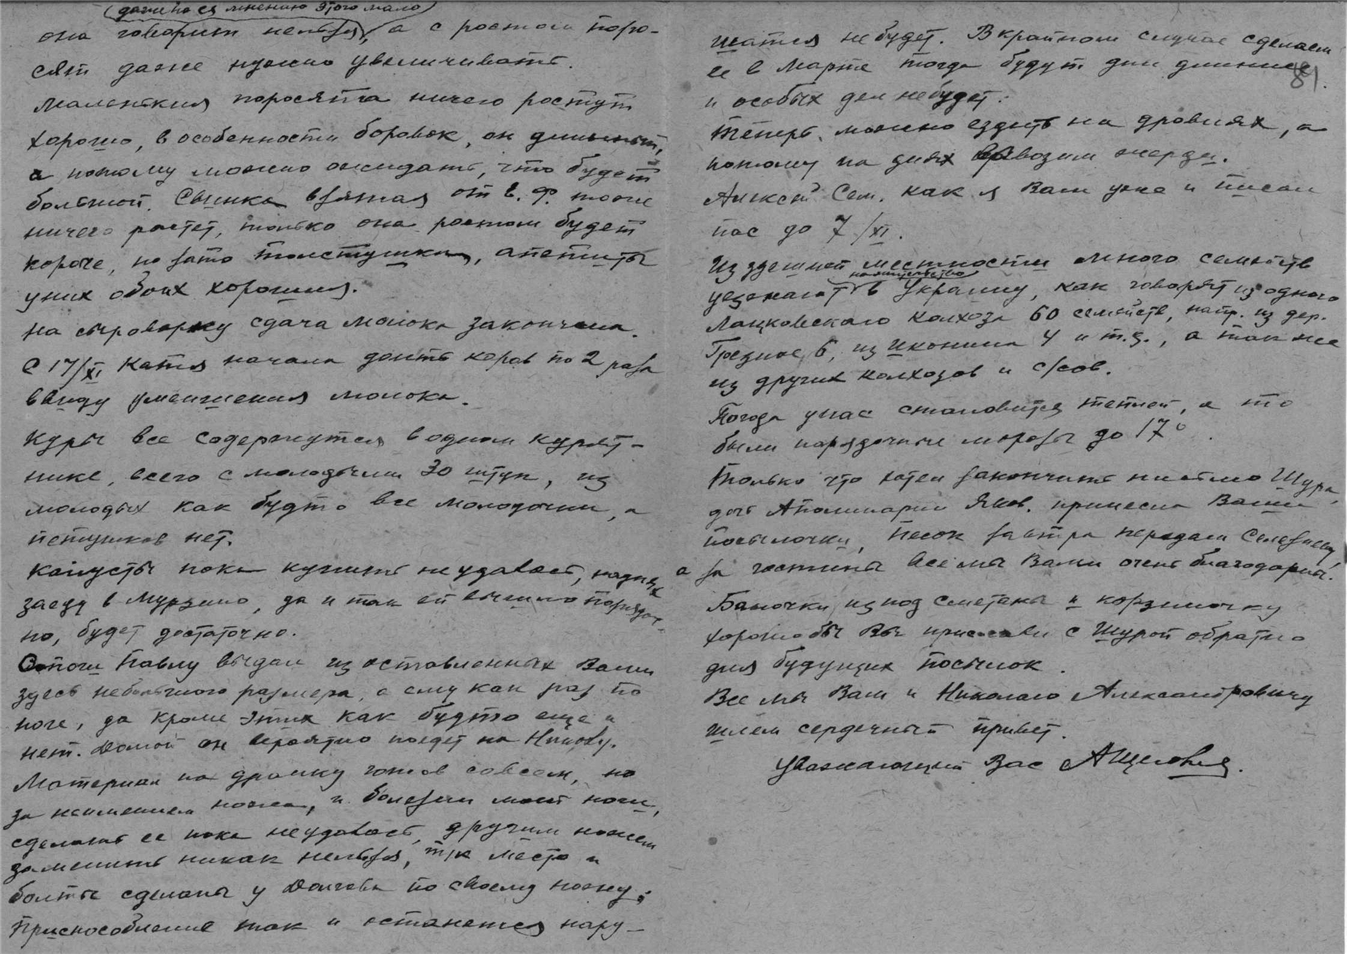 даже по ея мнению этого мало
она говорит нельзя, а с ростом поро-
сят даже нужно увеличивать.
Маленькия поросята ничего ростут
хорошо, в особенности боровок, он длинный,
а потому можно ожидать, что будет
большой. Свинка взятая от В. Ф. тоже
ничего ростет, только она ростом будет
короче, но зато толстушка, апетиты
у них обоих хорошия.
На сыроварку сдача молока закончена.
С 17/XI Катя начала доить коров по 2 раза
ввиду уменшения молока.
Куры все содержутся в одном курят-
нике, всего с молодыми 30 штук, из
молодых как будто все молодочки, а
петушков нет.
Капусты пока купить не удавает,
заеду в Мурзино, да и так ей
но, будет достаточно.
Сапоги Павлу выдал из оставленных Вами
здесь небольшого размера, а ему как раз по
ноге, да кроме этих как будто еще и
нет. Домой он вероятно поедет на Николу.
Материал на дранку готов совсем, но
за неимением ножа, и болезни моей ноги,
сделать ее пока неудавает, другим ножем
заменить никак нельзя, т/к место и
болты сделаны у Долгова по своему ножу.
Приспособление так и останется нару-
шатся не будет. В крайном случае сделаем
ее в Марте тогда будут дни длиннее
81.
и особых дел небудет.
Теперь можно ездить на дровнях, а
потому на днях возим жерди.
Алексей Сем. как я Вам уже и писал
пас до 7/XI.
Из здешней местности много семейств
на жительство
уезжают в Украину, как говорят из одного
Лацковскаго колхоза 60 семейств, напр. из дер.
Грезное 6, из Иконина 4 и т.д., а так же
из других колхозов и с/сов.
Погода у нас становится теплей, а то
были парядочные морозы до 17°.
Только что хотел закончить письмо Шура,
дочь Аполинарии Яков. принесла Ваши
посылочки, Песок завтра передам
а за гостинцы все мы Вами очень благодарны.
Баночки из под сметаны и корзиночку
хорошобы Вы прислали с Шурой обратно
для будущих посылок.
Все мы Вам и Николаю Александровичу
шлем сердечный привет.
Уважающий Вас АЩелов.